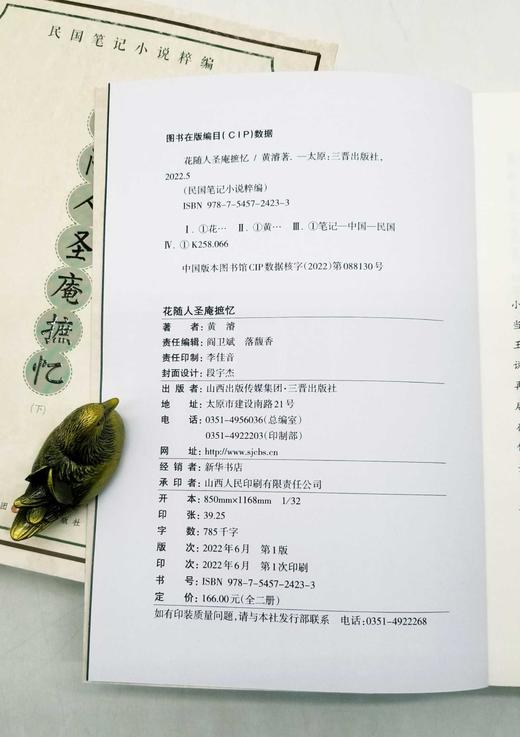 民国笔记小说粹编
人
圣
庵
摭
忆
(下)
图书在版编目(CIP)数据
花随人圣庵摭忆 / 黄濬著. —太原:三晋出版社,
2022.5
(民国笔记小说粹编)
ISBN 978-7-5457-2423-3
Ⅰ. ①花… Ⅱ. ①黄… Ⅲ. ①笔记—中国—民国
Ⅳ. ① K258.066
中国版本图书馆CIP数据核字(2022)第088130号
花随人圣庵摭忆
著 者:黄 濬
责任编辑:阎卫斌 落馥香
责任印制:李佳音
封面设计:段宇杰
出 版 者:山西出版传媒集团·三晋出版社
地 址:太原市建设南路21号
电 话:0351-4956036(总编室)
0351-4922203(印制部)
网 址:http://www.sjcbs.cn
经 销 者:新华书店
承 印 者:山西人民印刷有限责任公司
开 本:850mm×1168mm 1/32
印 张:39.25
字 数:785千字
版 次:2022年6月 第1版
印 次:2022年6月 第1次印刷
书 号:ISBN 978-7-5457-2423-3
定 价:166.00元(全二册)
如有印装质量问题,请与本社发行部联系 电话:0351-4922268